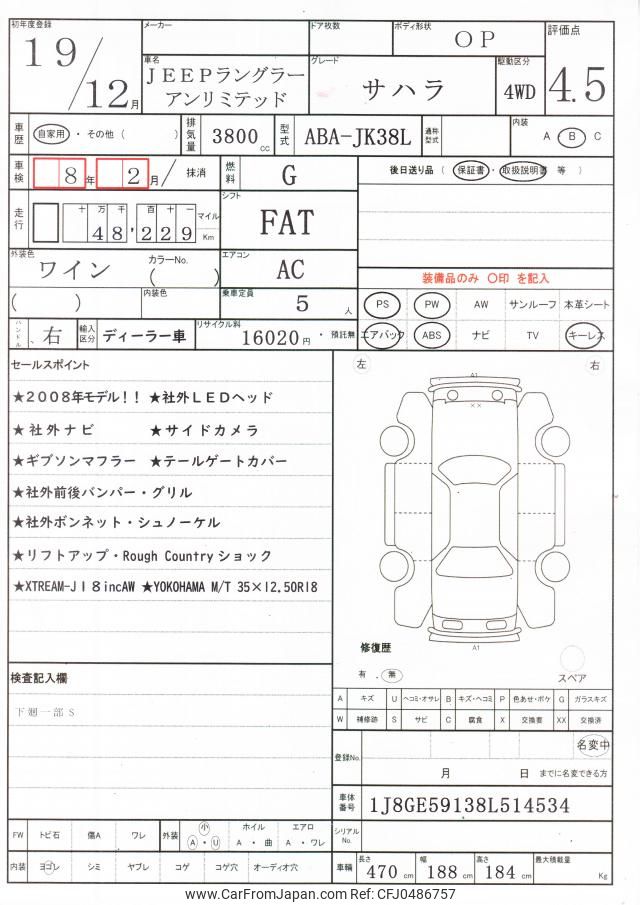 初年度登録 メーカー ドア枚数 ボディ形状 OP 評価点
19/12月 車名 JEEPラングラー アンリミテッド グレード サハラ 駆動区分 4WD 4.5
車歴 自家用・その他( ) 排気量 3800cc 型式 ABA-JK38L 通称型式 内装 A B C
車検 8年 2月/ 抹消 燃料 G 後日送り品( 保証書・取扱説明書 等 )
走行 十 万 千 百 十 一 48,229 マイル Km シフト FAT
外装色 ワイン カラーNo. ( ) エアコン AC 装備品のみ 〇印 を記入
( ) 内装色 乗車定員 5人 PS PW AW サンルーフ 本革シート
ハンドル 、右 輸入区分 ディーラー車 リサイクル料 16020円・預託無 エアバック ABS ナビ TV キーレス
セールスポイント
★2008年モデル!! ★社外LEDヘッド
★社外ナビ ★サイドカメラ
★ギブソンマフラー ★テールゲートカバー
★社外前後バンパー・グリル
★社外ボンネット・シュノーケル
★リフトアップ・Rough Countryショック
★XTREAM-J18incAW ★YOKOHAMA M/T 35×12.50R18
左 右
A1
××
A1
修復歴
有 . 無
スペア
検査記入欄
下廻一部S
A キズ U ヘコミ・オサレ B キズ・ヘコミ P 色あせ・ボケ G ガラスキズ
W 補修跡 S サビ C 腐食 X 交換要 XX 交換済
登録No. 名変中
月 日 までに名変できる方
車体番号 1J8GE59138L514534
FW トビ石 傷A ワレ 外装 小 A・U ホイル A・曲 エアロ A・ワレ シリアルNo.
内装 ヨゴレ シミ ヤブレ コゲ コゲ穴 オーディオ穴 車輌 長さ 470cm 幅 188cm 高さ 184cm 最大積載量 Kg
www.CarFromJapan.com Ref: CFJ0486757